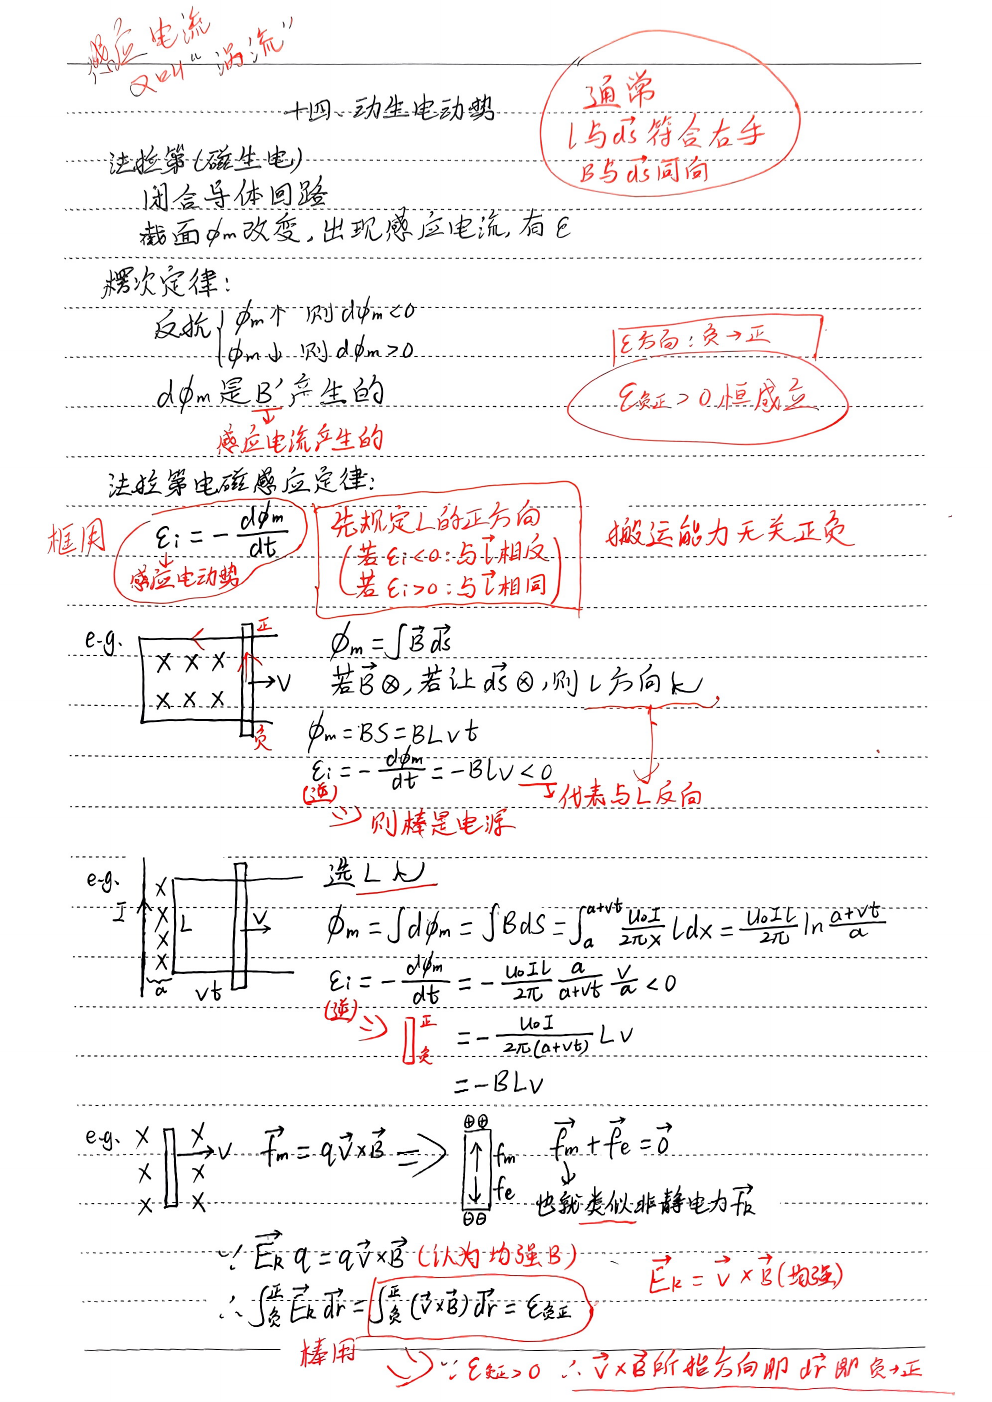 感应电流
又叫“涡流”
十四、动生电动势
通常
l与d𝑠⃗符合右手
B与d𝑠⃗同向
法拉第(磁生电)
闭合导体回路
截面ϕm改变,出现感应电流,有ε
楞次定律:
反抗{ϕm↑ 则dϕm<0
ϕm↓ 则dϕm>0
dϕm是B′产生的
感应电流产生的
ε方向:负→正
ε负正>0恒成立
法拉第电磁感应定律:
框用
εi=-dϕm/dt
感应电动势
先规定L的正方向
(若εi<0:与l⃗相反
若εi>0:与l⃗相同)
搬运能力无关正负
e.g.
正
× × ×
× × ×
V
负
ϕm=∫B⃗ds⃗
若B⃗⊗,若让ds⃗⊗,则L方向↻
ϕm=BS=BLvt
εi=-dϕm/dt=-BLV<0
(逆)
代表与L反向
⇒则棒是电源
e.g.
I
×
×
×
×
L
V
a
vt
选L↻
ϕm=∫dϕm=∫BdS=∫ₐ^(a+vt) u₀I/2πx Ldx=u₀IL/2π ln a+vt/a
εi=-dϕm/dt=-u₀IL/2π a/a+vt v/a<0
(逆)⇒
正
负
=-u₀I/2π(a+vt) LV
=-BLV
e.g.
× ×
× ×
× ×
V
f⃗m=qv⃗×B⃗ ⇒
⊕⊕
fm
fe
⊖⊖
f⃗m+f⃗e=0⃗
也就类似非静电力f⃗k
∵E⃗k q=qv⃗×B⃗(认为均强B)
E⃗k=v⃗×B⃗(均强)
∴∫负^正 E⃗k dr⃗=∫负^正(v⃗×B⃗)dr⃗=ε负正
棒用
⇒∵ε负正>0 ∴v⃗×B⃗所指方向即dr⃗即负→正